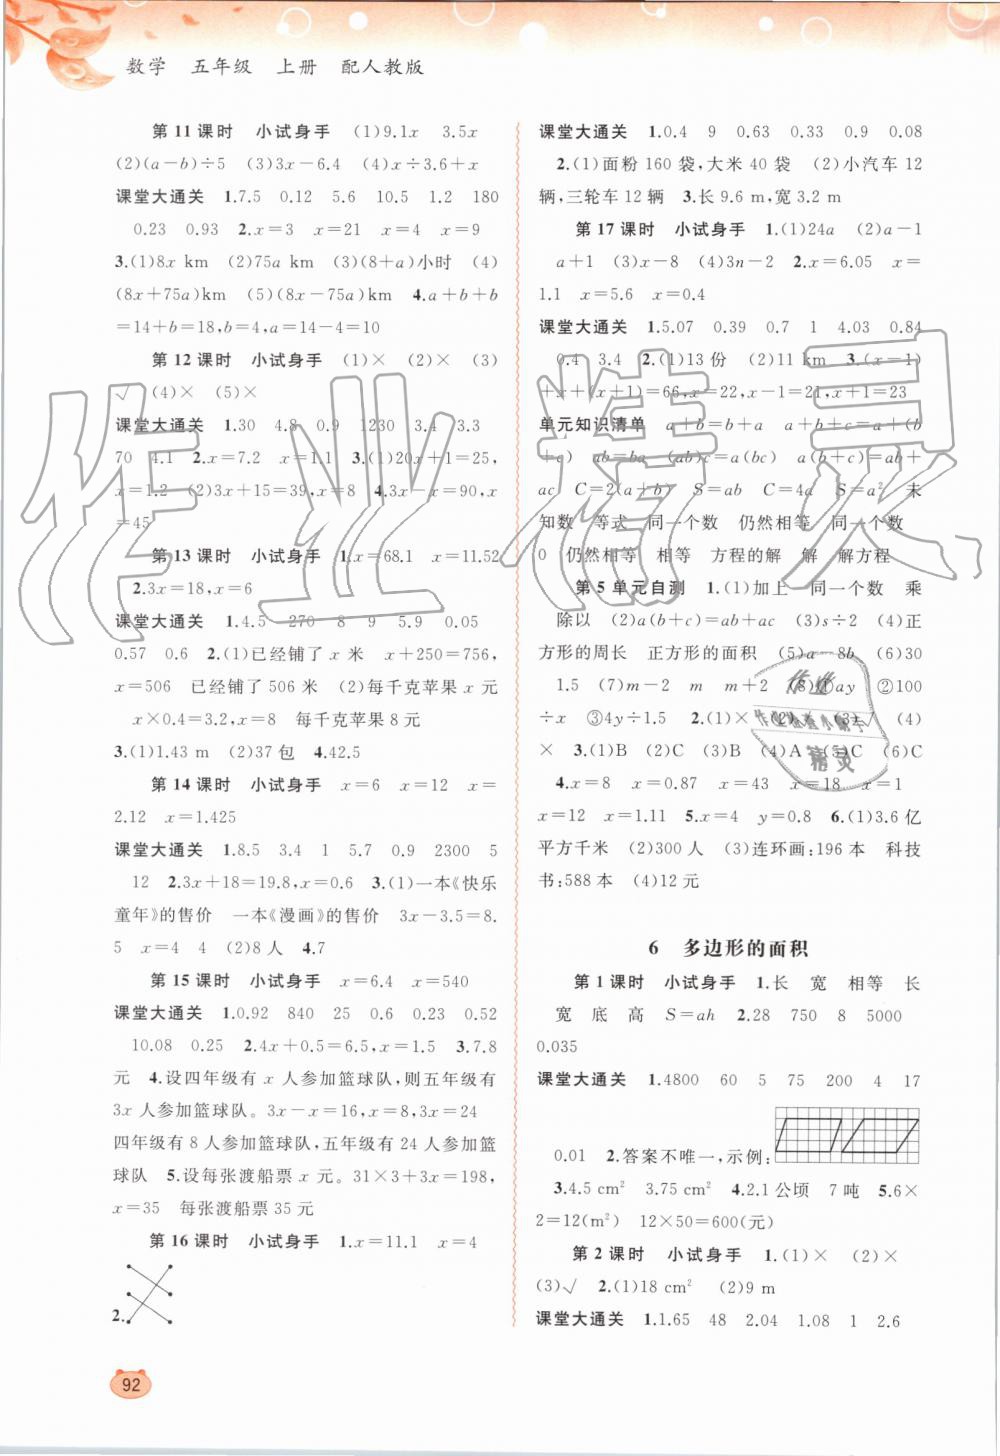 数学 五年级 上册 配人教版
第11课时 小试身手 (1)9.1x 3.5x
(2)(a-b)÷5 (3)3x-6.4 (4)x÷3.6+x
课堂大通关 1.7.5 0.12 5.6 10.5 1.2 180
0.23 0.93 2.x=3 x=21 x=4 x=9
3.(1)8x km (2)75a km (3)(8+a)小时 (4)
(8x+75a)km (5)(8x-75a)km 4.a+b+b
=14+b=18,b=4,a=14-4=10
第12课时 小试身手 (1)× (2)× (3)
√ (4)× (5)×
课堂大通关 1.30 4.8 0.9 1230 3.4 3.3
70 4.1 2.x=7.2 x=1.1 3.(1)20x+1=25,
x=1.2 (2)3x+15=39,x=8 4.3x-x=90,x
=45
第13课时 小试身手 1.x=68.1 x=11.52
2.3x=18,x=6
课堂大通关 1.4.5 270 8 9 5.9 0.05
0.57 0.6 2.(1)已经铺了 x 米 x+250=756,
x=506 已经铺了 506 米 (2)每千克苹果 x 元
x×0.4=3.2,x=8 每千克苹果 8 元
3.(1)1.43 m (2)37 包 4.42.5
第14课时 小试身手 x=6 x=12 x=
2.12 x=1.425
课堂大通关 1.8.5 3.4 1 5.7 0.9 2300 5
12 2.3x+18=19.8,x=0.6 3.(1)一本《快乐
童年》的售价 一本《漫画》的售价 3x-3.5=8.
5 x=4 4 (2)8 人 4.7
第15课时 小试身手 x=6.4 x=540
课堂大通关 1.0.92 840 25 0.6 0.23 0.52
10.08 0.25 2.4x+0.5=6.5,x=1.5 3.7.8
元 4.设四年级有 x 人参加篮球队,则五年级有
3x 人参加篮球队。3x-x=16,x=8,3x=24
四年级有 8 人参加篮球队,五年级有 24 人参加篮
球队 5.设每张渡船票 x 元。31×3+3x=198,
x=35 每张渡船票 35 元
第16课时 小试身手 1.x=11.1 x=4
2.
92
课堂大通关 1.0.4 9 0.63 0.33 0.9 0.08
2.(1)面粉 160 袋,大米 40 袋 (2)小汽车 12
辆,三轮车 12 辆 3.长 9.6 m,宽 3.2 m
第17课时 小试身手 1.(1)24a (2)a-1
a+1 (3)x-8 (4)3n-2 2.x=6.05 x=
1.1 x=5.6 x=0.4
课堂大通关 1.5.07 0.39 0.7 1 4.03 0.84
0.4 3.4 2.(1)13 份 (2)11 km 3.(x-1)
+x+(x+1)=66,x=22,x-1=21,x+1=23
单元知识清单 a+b=b+a a+b+c=a+(b
+c) ab=ba (ab)c=a(bc) a(b+c)=ab+
ac C=2(a+b) S=ab C=4a S=a² 未
知数 等式 同一个数 仍然相等 同一个数
0 仍然相等 相等 方程的解 解 解方程
第5单元自测 1.(1)加上 同一个数 乘
除以 (2)a(b+c)=ab+ac (3)s÷2 (4)正
方形的周长 正方形的面积 (5)a-8b (6)30
1.5 (7)m-2 m m+2 (8)①ay ②100
÷x ③4y÷1.5 2.(1)× (2)√ (3)√ (4)
× 3.(1)B (2)C (3)B (4)A (5)C (6)C
4.x=8 x=0.87 x=43 x=18 x=1
x=12 x=1.11 5.x=4 y=0.8 6.(1)3.6 亿
平方千米 (2)300 人 (3)连环画:196 本 科技
书:588 本 (4)12 元
6 多边形的面积
第1课时 小试身手 1.长 宽 相等 长
宽 底 高 S=ah 2.28 750 8 5000
0.035
课堂大通关 1.4800 60 5 75 200 4 17
0.01 2.答案不唯一,示例:
3.4.5 cm² 3.75 cm² 4.2.1 公顷 7 吨 5.6×
2=12(m²) 12×50=600(元)
第2课时 小试身手 1.(1)× (2)×
(3)√ 2.(1)18 cm² (2)9 m
课堂大通关 1.1.65 48 2.04 1.08 1 2.6
作业精灵